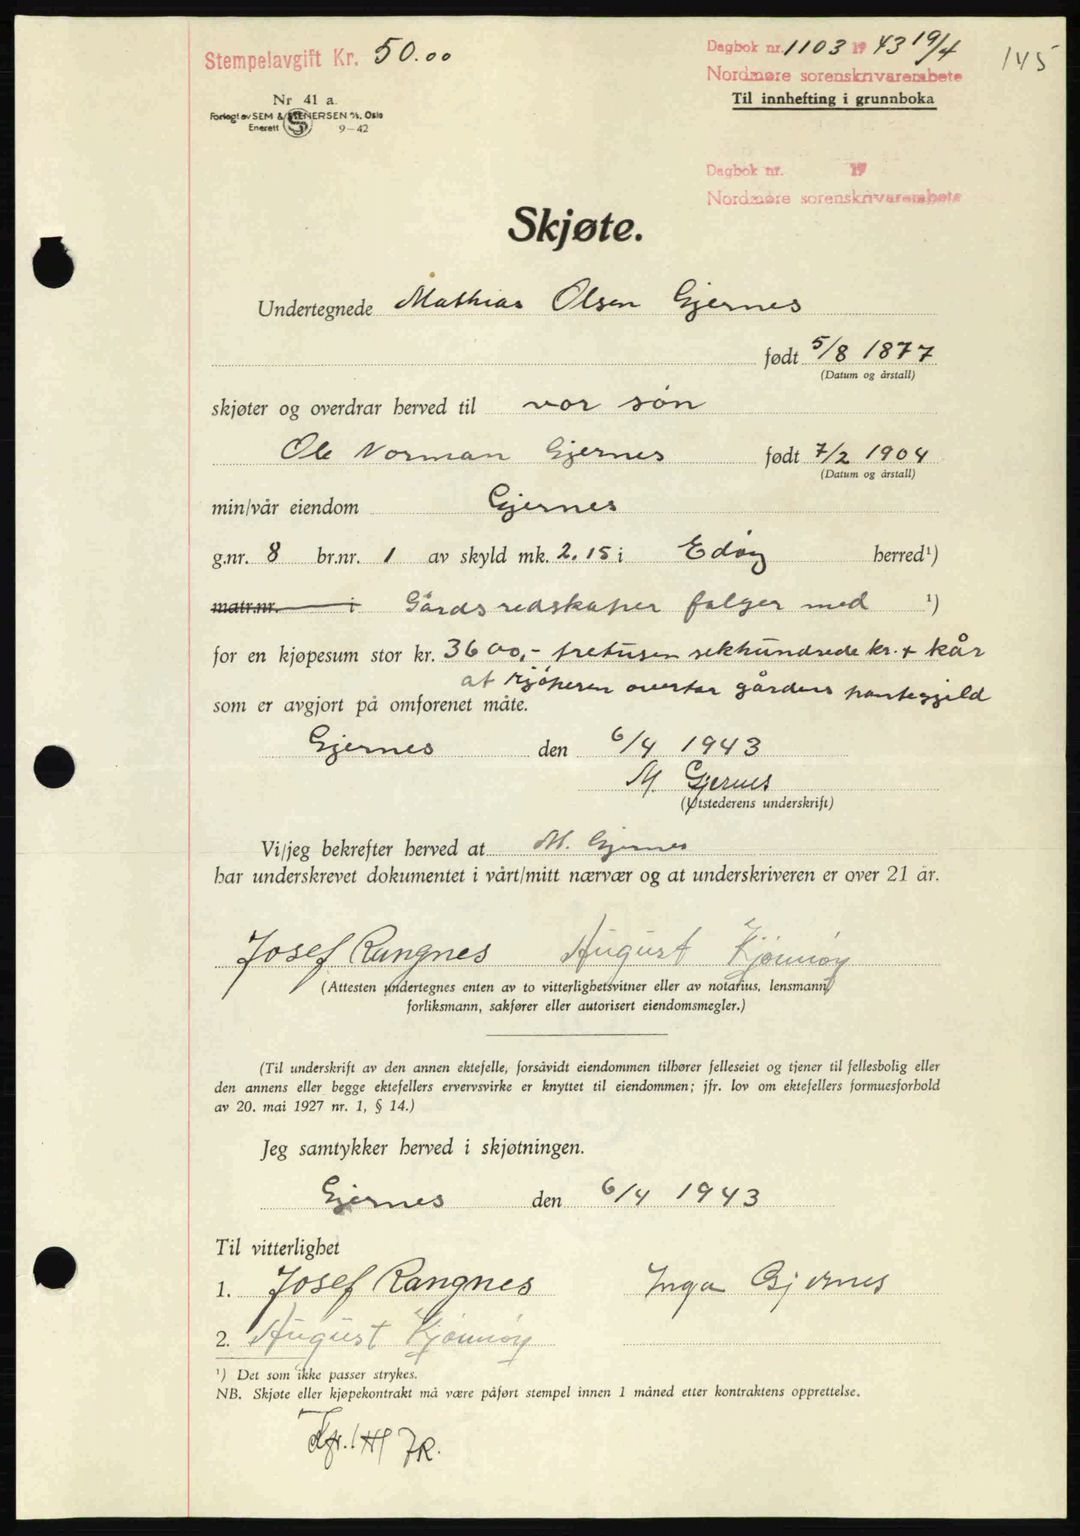 Stempelavgift Kr. 50.00
Dagbok nr. 1103 1943 19/4
145
Nordmøre sorenskriverembete
Til innhefting i grunnboka
Nr 41 a.
Forlagt av SEM & STENERSEN A/S, Oslo
Enerett 9-42
Dagbok nr. 19
Nordmøre sorenskriverembete
Skjøte.
Undertegnede Mathias Olsen Gjernes
født 5/8 1877
(Datum og årstall)
skjøter og overdrar herved til vor søn
Ole Norman Gjernes født 7/2 1904
(Datum og årstall)
min/vår eiendom Gjernes
g.nr. 8 br.nr. 1 av skyld mk. 2.15 i Edøy herred¹)
matr.nr. i Gårdsredskaper følger med ¹)
for en kjøpesum stor kr. 3600,- tretusen sekhundrede kr. + kår
at kjøperen overtar gårdens pantegjeld
som er avgjort på omforenet måte.
Gjernes den 6/4 1943
M. Gjernes
(Utstederens underskrift)
Vi/jeg bekrefter herved at M. Gjernes
har underskrevet dokumentet i vårt/mitt nærvær og at underskriveren er over 21 år.
Josef Rangnes August Kjønnøy
(Attesten undertegnes enten av to vitterlighetsvitner eller av notarius, lensmann,
forliksmann, sakfører eller autorisert eiendomsmegler.)
(Til underskrift av den annen ektefelle, forsåvidt eiendommen tilhører felleseiet og tjener til fellesbolig eller
den annens eller begge ektefellers ervervsvirke er knyttet til eiendommen; jfr. lov om ektefellers formuesforhold
av 20. mai 1927 nr. 1, § 14.)
Jeg samtykker herved i skjøtningen.
Gjernes den 6/4 1943
Til vitterlighet
1. Josef Rangnes Inga Gjernes
2. August Kjønnøy
¹) Det som ikke passer strykes.
NB. Skjøte eller kjøpekontrakt må være påført stempel innen 1 måned etter kontraktens opprettelse.